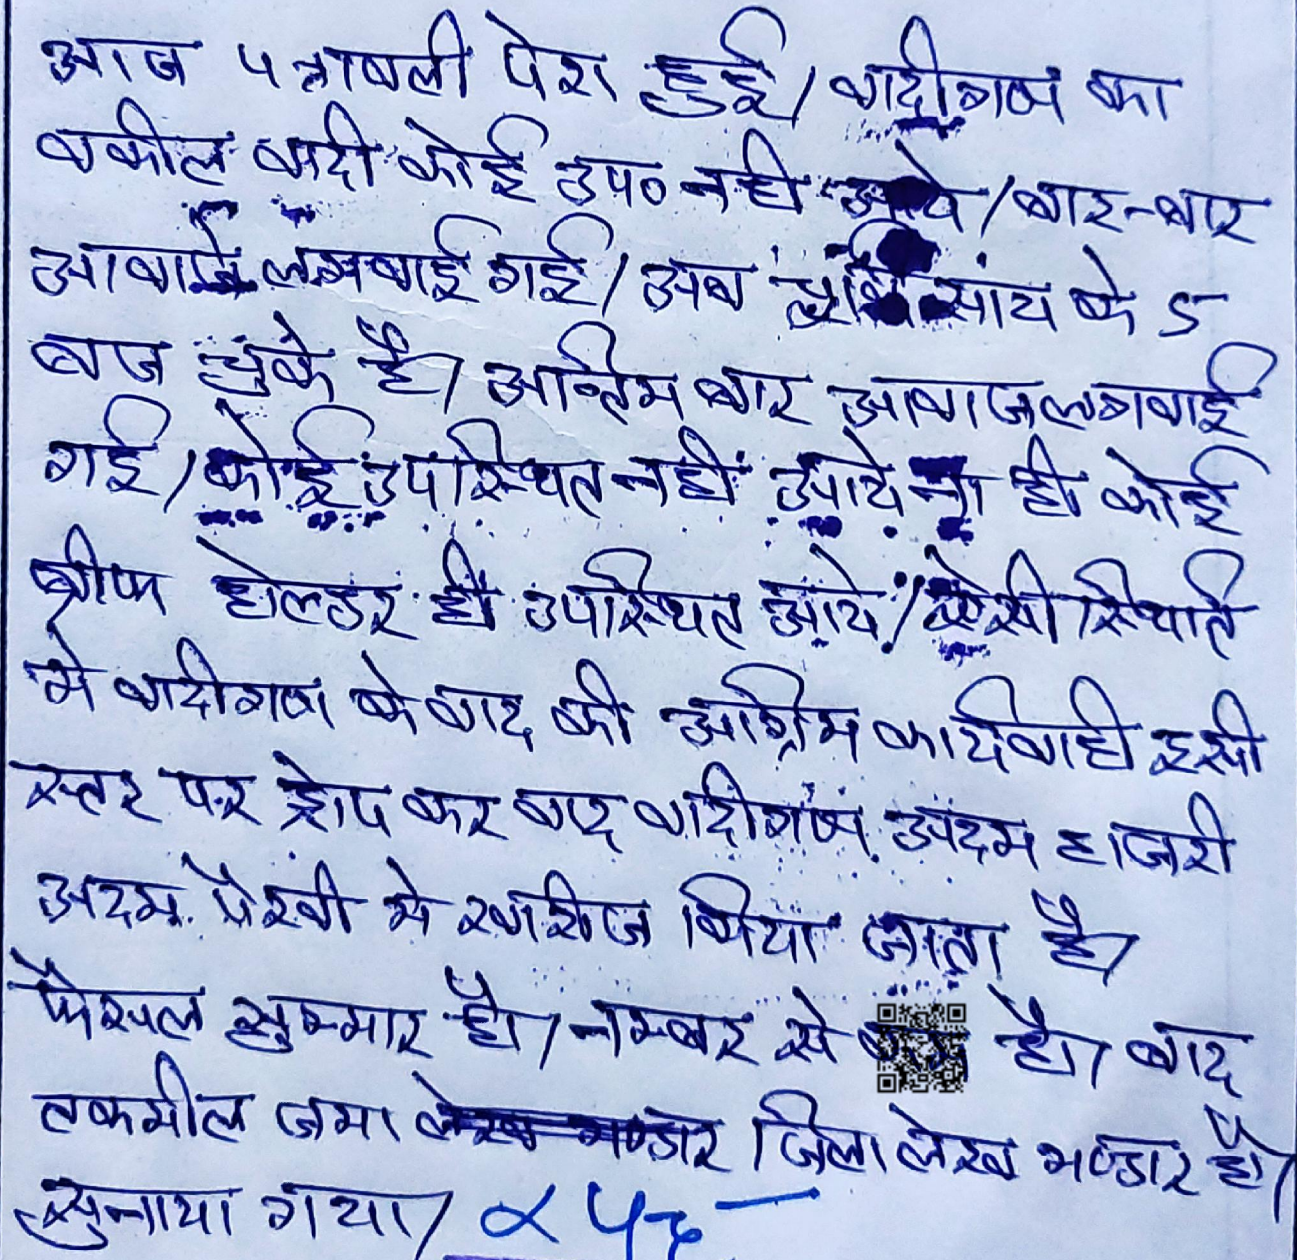 आज पत्रावली पेश हुई। वादीगण का
वकील वादी कोई उप० नही आये। बार-बार
आवाजे लगवाई गई। अब सांय के 5
बज चुके है। अन्तिम बार आवाज लगवाई
गई। कोई उपस्थित नही आये ना ही कोई
ब्रीफ होल्डर ही उपस्थित आये। ऐसी स्थिति
मे वादीगण के वाद की अग्रिम कार्यवाही इसी
स्तर पर ड्रोप कर वाद वादीगण अदम हाजरी
अदम पैरवी मे खारीज किया जाता है।
फैसल शुम्मार हो। नम्बर से कम हो। बाद
तकमील जमा जिला लेख भण्डार हो।
सुनाया गया।